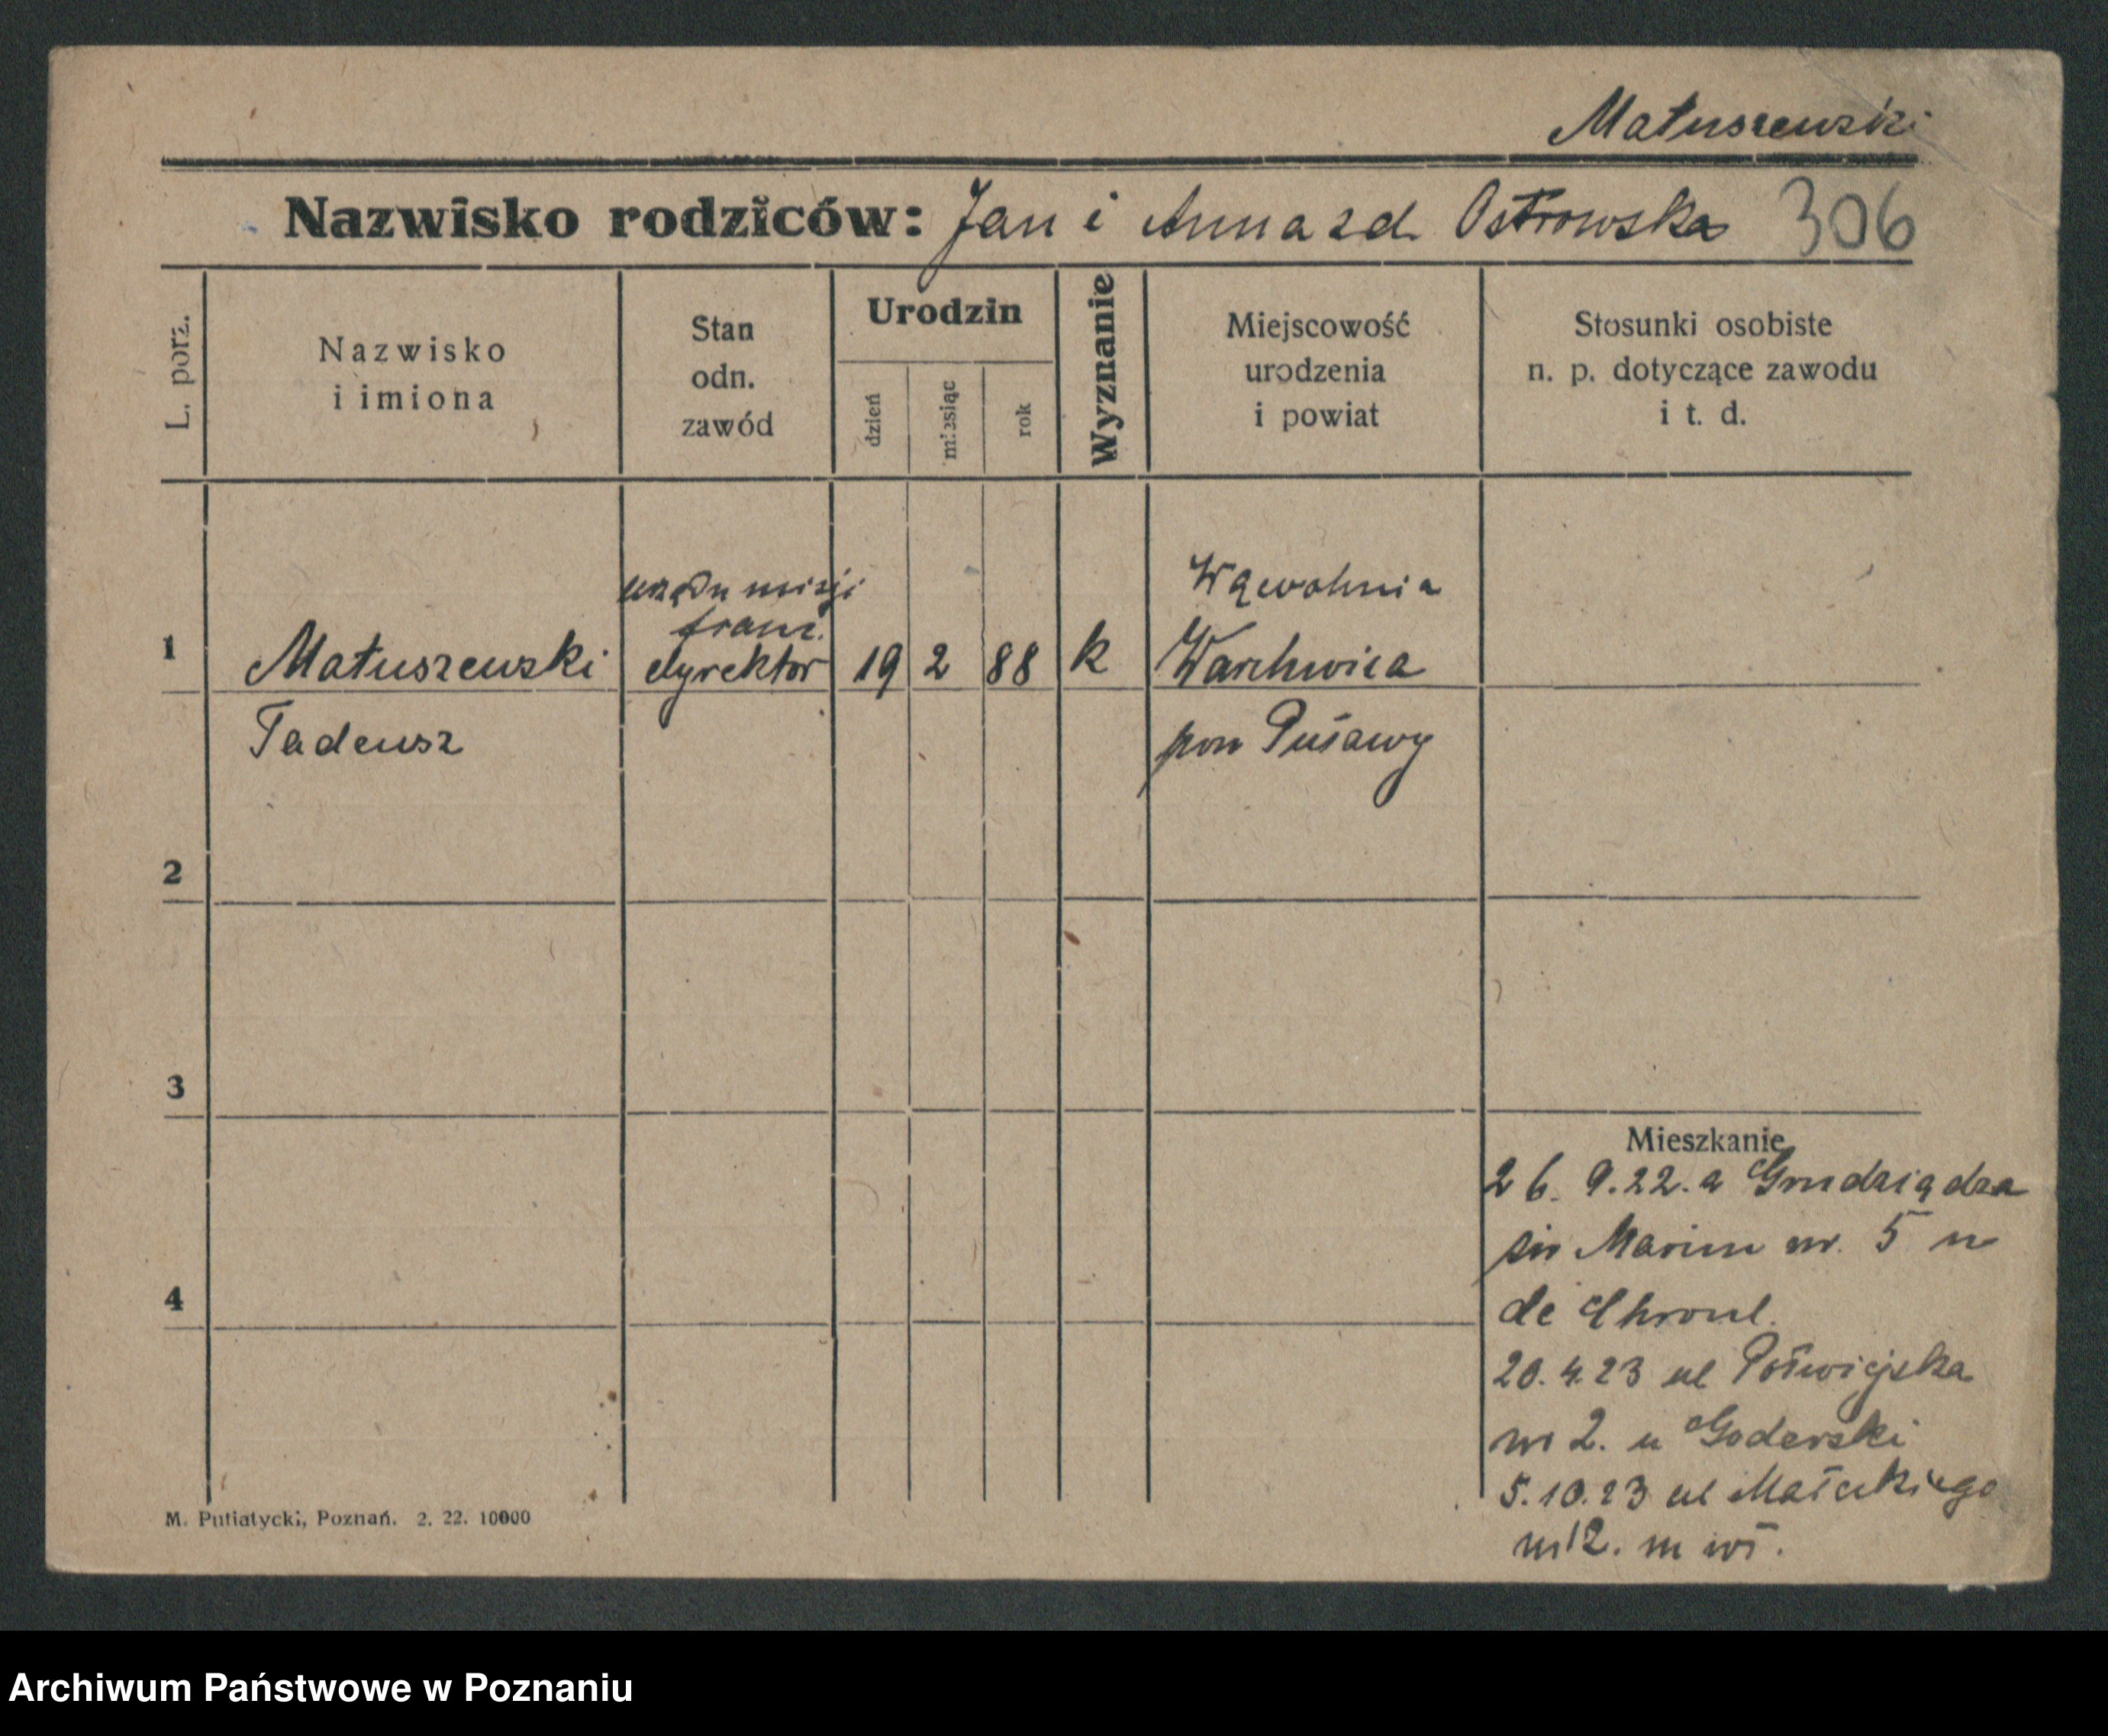 Matuszewski
Nazwisko rodziców: Jan i Anna zd. Ostrowska 306
L. porz.
Nazwisko
i imiona
Stan
odn.
zawód
Urodzin
dzień
miesiąc
rok
Wyznanie
Miejscowość
urodzenia
i powiat
Stosunki osobiste
n. p. dotyczące zawodu
i t. d.
urzędu misji
franc.
Wąwolnica
1 Matuszewski dyrektor 19 2 88 k
Tadeusz pow Puławy
2
3
4
Mieszkanie
26. 9.22. z Grudziądza
Marcin nr. 5 u
de
20.4.23 ul Półwiejska
nr 2. u Goderski
5.10.23 ul Małeckiego
12.
M. Putiatycki, Poznań. 2. 22. 10000
Archiwum Państwowe w Poznaniu